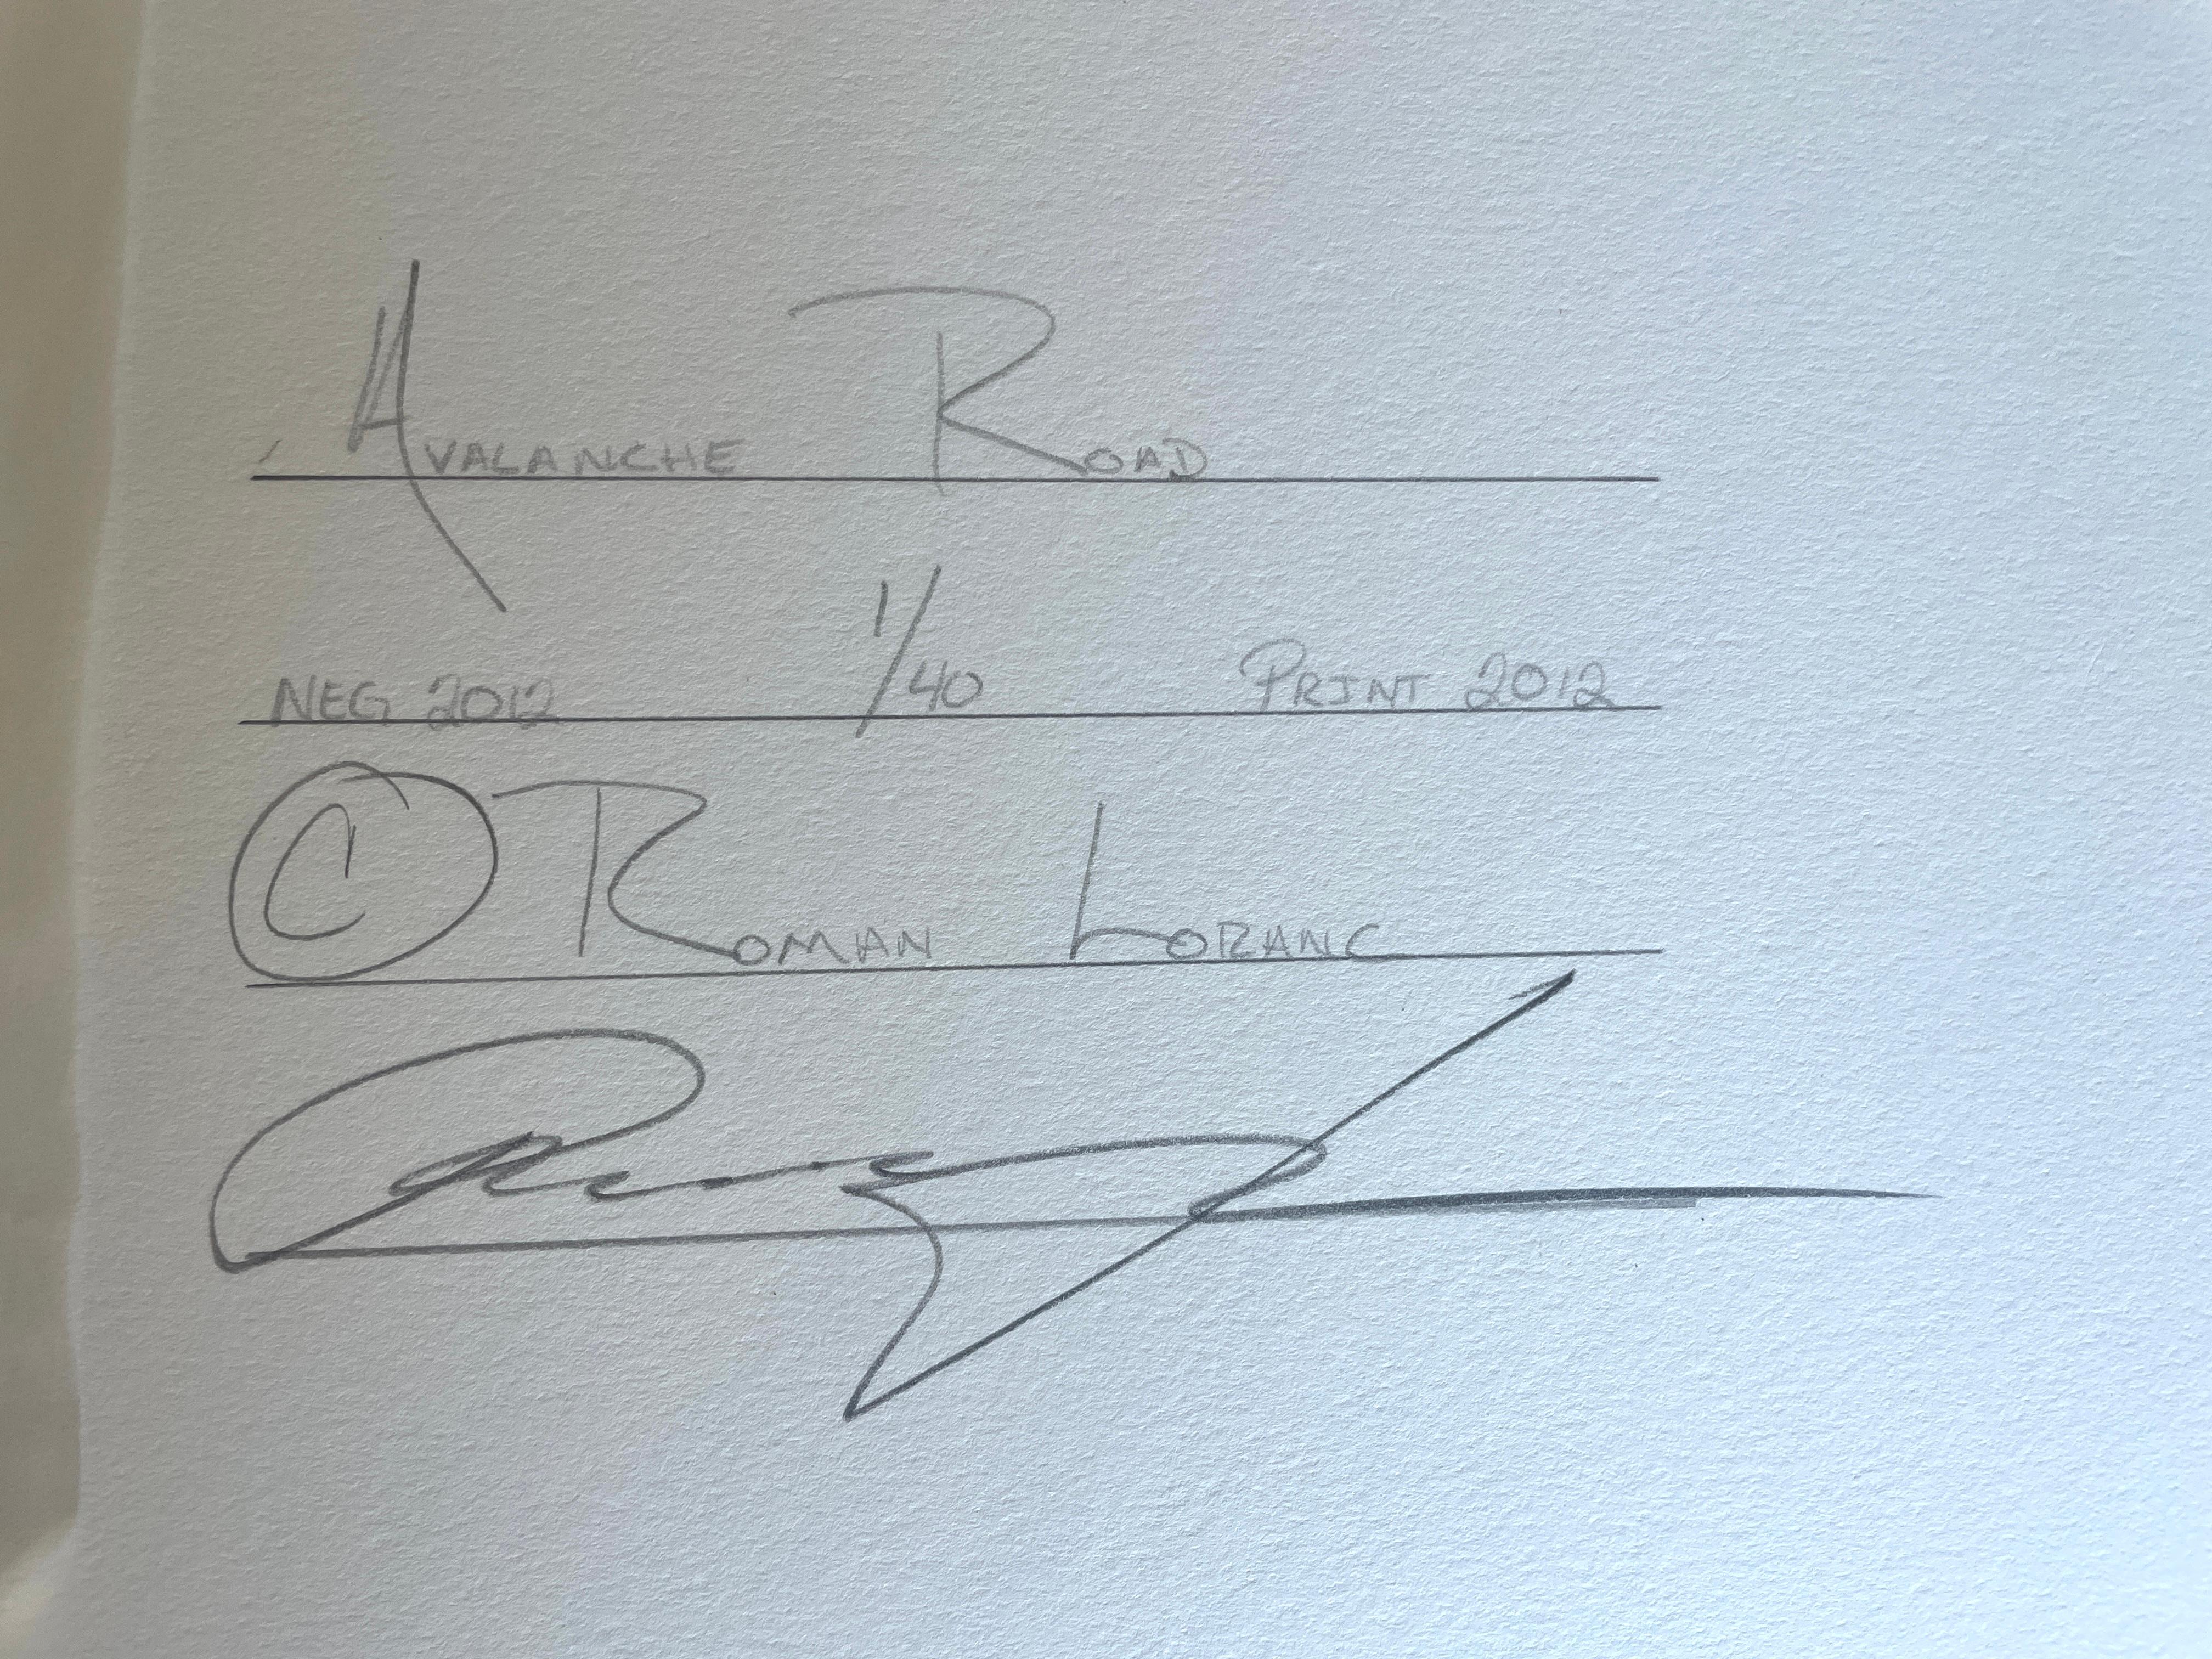 AVALANCHE ROAD
NEG 2012 1/40 PRINT 2012
© ROMAN LORANC